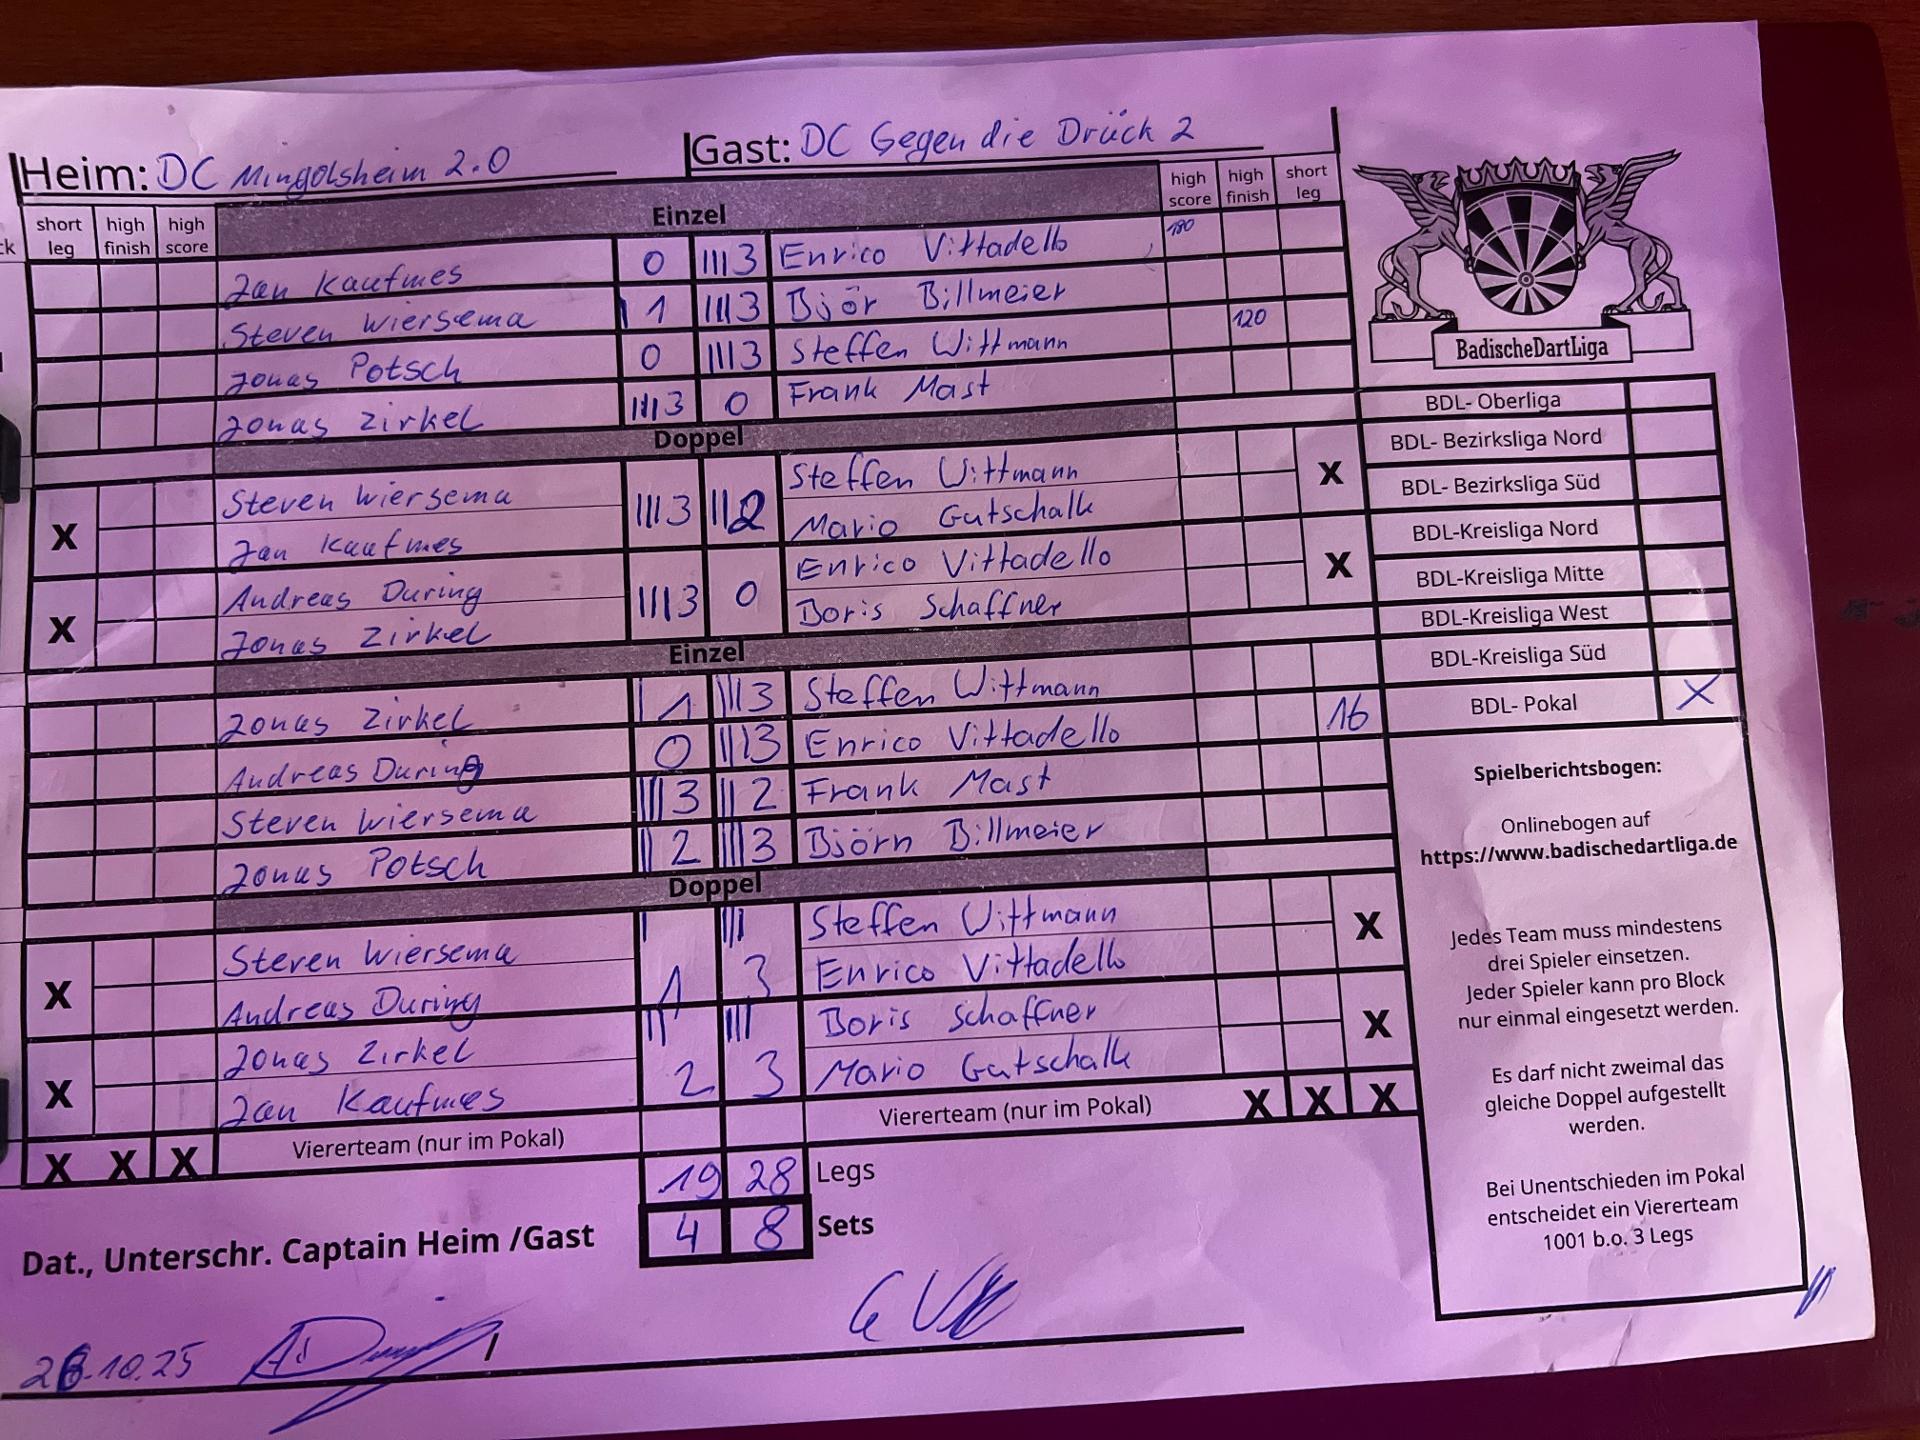 Heim: DC Mingolsheim 2.0 Gast: DC Gegen die Drück 2
ck short leg high finish high score Einzel high score high finish short leg
Jan Kaufmes 0 III 3 Enrico Vittadello 180
Steven Wiersema I 1 III 3 Björ Billmeier
Jonas Potsch 0 III 3 Steffen Wittmann 120
Jonas Zirkel III 3 0 Frank Mast
Doppel
Steven Wiersema III 3 II 2 Steffen Wittmann X
X Jan Kaufmes Mario Gutschalk
Andreas During III 3 0 Enrico Vittadello X
X Jonas Zirkel Boris Schaffner
Einzel
Jonas Zirkel I 1 III 3 Steffen Wittmann
Andreas During 0 III 3 Enrico Vittadello 16
Steven Wiersema III 3 II 2 Frank Mast
Jonas Potsch II 2 III 3 Björn Billmeier
Doppel
Steven Wiersema I III Steffen Wittmann X
X Andreas During 1 3 Enrico Vittadello
Jonas Zirkel II III Boris Schaffner X
X Jan Kaufmes 2 3 Mario Gutschalk
X X X Viererteam (nur im Pokal) Viererteam (nur im Pokal) X X X
19 28 Legs
Dat., Unterschr. Captain Heim /Gast 4 8 Sets
26.10.25
BadischeDartLiga
BDL- Oberliga
BDL- Bezirksliga Nord
BDL- Bezirksliga Süd
BDL-Kreisliga Nord
BDL-Kreisliga Mitte
BDL-Kreisliga West
BDL-Kreisliga Süd
BDL- Pokal X
Spielberichtsbogen:
Onlinebogen auf
https://www.badischedartliga.de
Jedes Team muss mindestens
drei Spieler einsetzen.
Jeder Spieler kann pro Block
nur einmal eingesetzt werden.
Es darf nicht zweimal das
gleiche Doppel aufgestellt
werden.
Bei Unentschieden im Pokal
entscheidet ein Viererteam
1001 b.o. 3 Legs